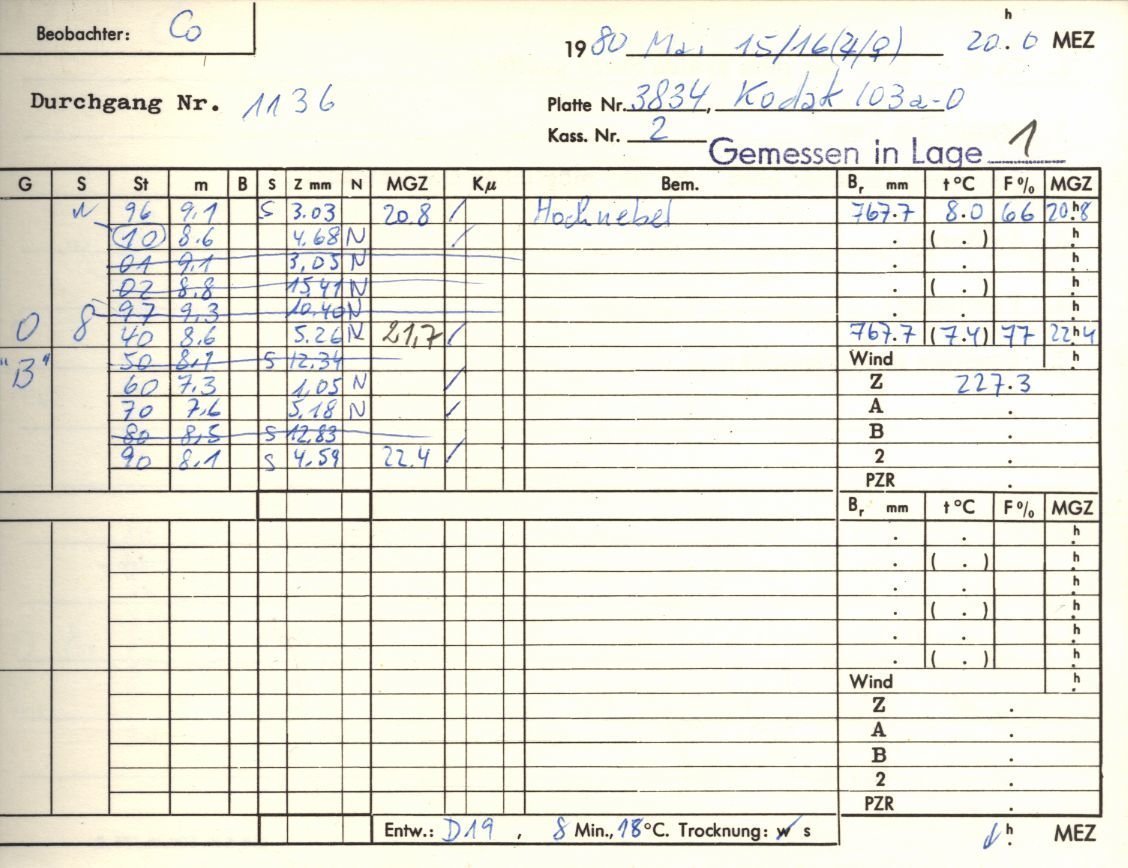 Beobachter: Co
1980 Mai 15/16(4/9) 20.0 h MEZ
Durchgang Nr. 1136
Platte Nr. 3834, Kodak 103a-O
Kass. Nr. 2
Gemessen in Lage 1
G S St m B S Z mm N MGZ Kμ Bem. Br mm t°C F% MGZ
N 96 9,1 S 3.03 20.8 / Hochnebel 767.7 8.0 66 20.h8
10 8.6 4.68 N / . ( . ) h
01 9,1 3,05 N . . h
02 8.8 15.41 N . ( . ) h
97 9,3 10.40 N . . h
0 8 40 8.6 5.26 N 21,7 / 767.7 (7.4) 77 22.h4
"B" 50 8,1 S 12,34 Wind h
60 7.3 1,05 N / Z 227.3
70 7,6 5,18 N / A .
80 8,5 S 12,83 B .
90 8,1 S 4.59 22.4 / 2 .
PZR .
Br mm t°C F% MGZ
. . h
. ( . ) h
. . h
. ( . ) h
. . h
. ( . ) h
Wind h
Z .
A .
B .
2 .
PZR .
Entw.: D19 , 8 Min., 18°C. Trocknung: w s
h MEZ